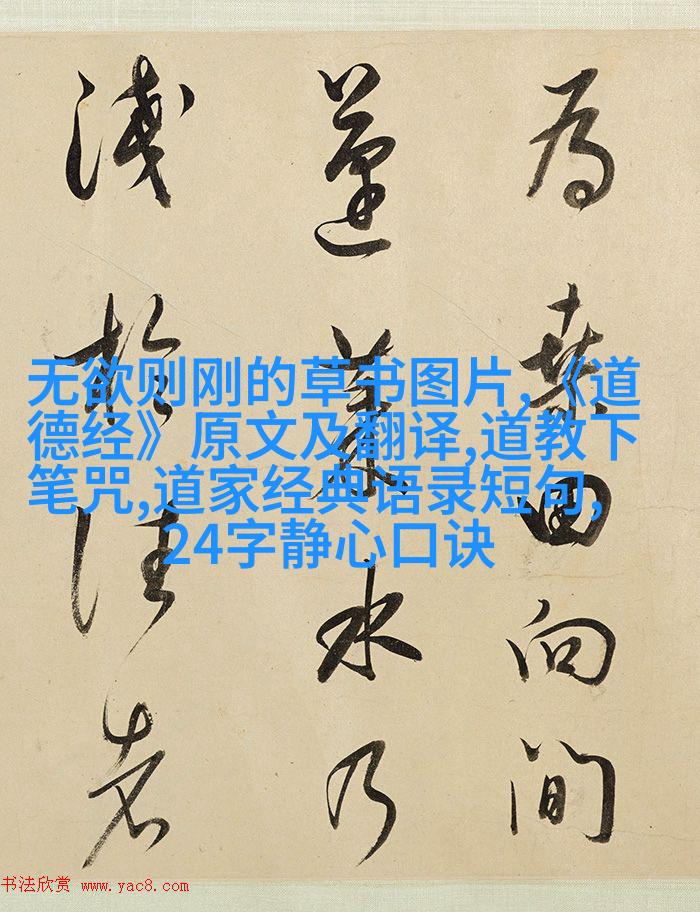 為桑田向間
蓬萊水乃
淺於往者
无欲则刚的草书图片,《道
德经》原文及翻译,道教下
笔咒,道家经典语录短句,
24字静心口诀
书法欣赏 www.yac8.com